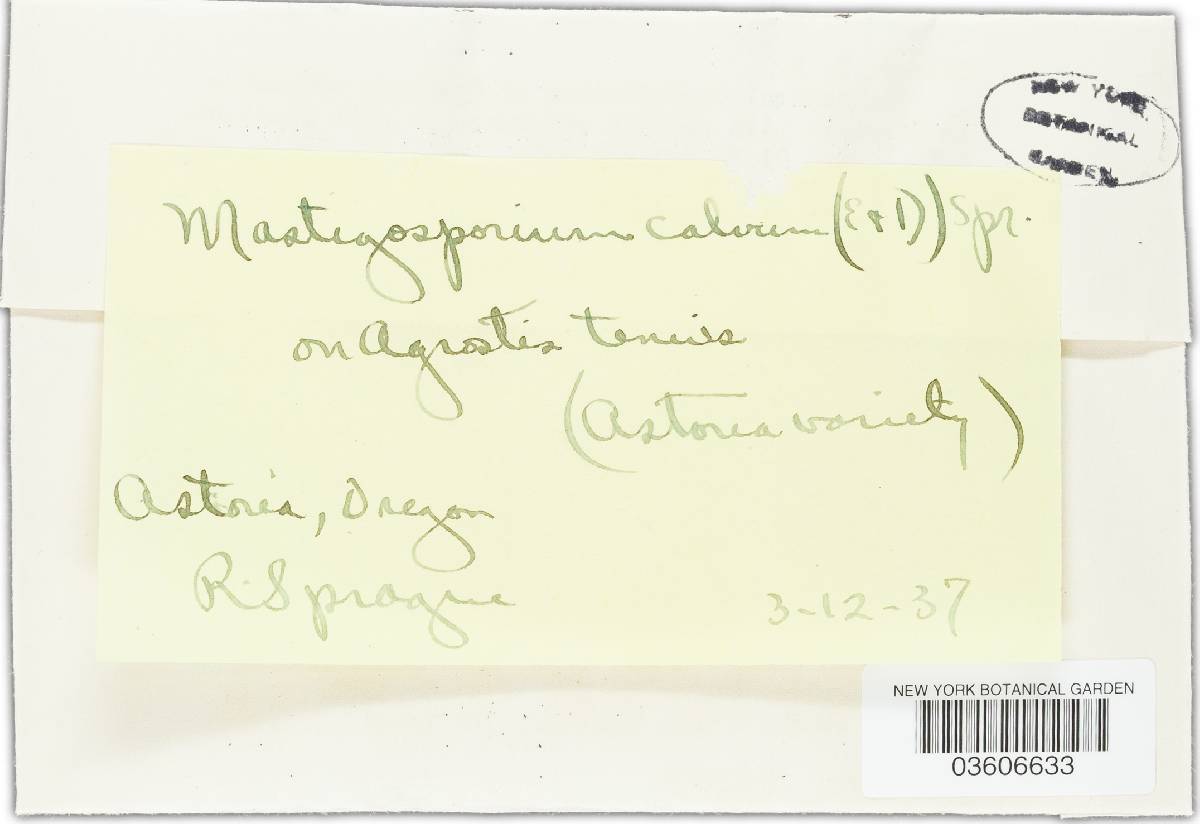 NEW YORK
BOTANICAL
GARDEN
Mastigosporium calvum (E & D) Spr.
on Agrostis tenuis
(Astoria variety)
Astoria, Oregon
R. Sprague 3-12-37
NEW YORK BOTANICAL GARDEN
03606633